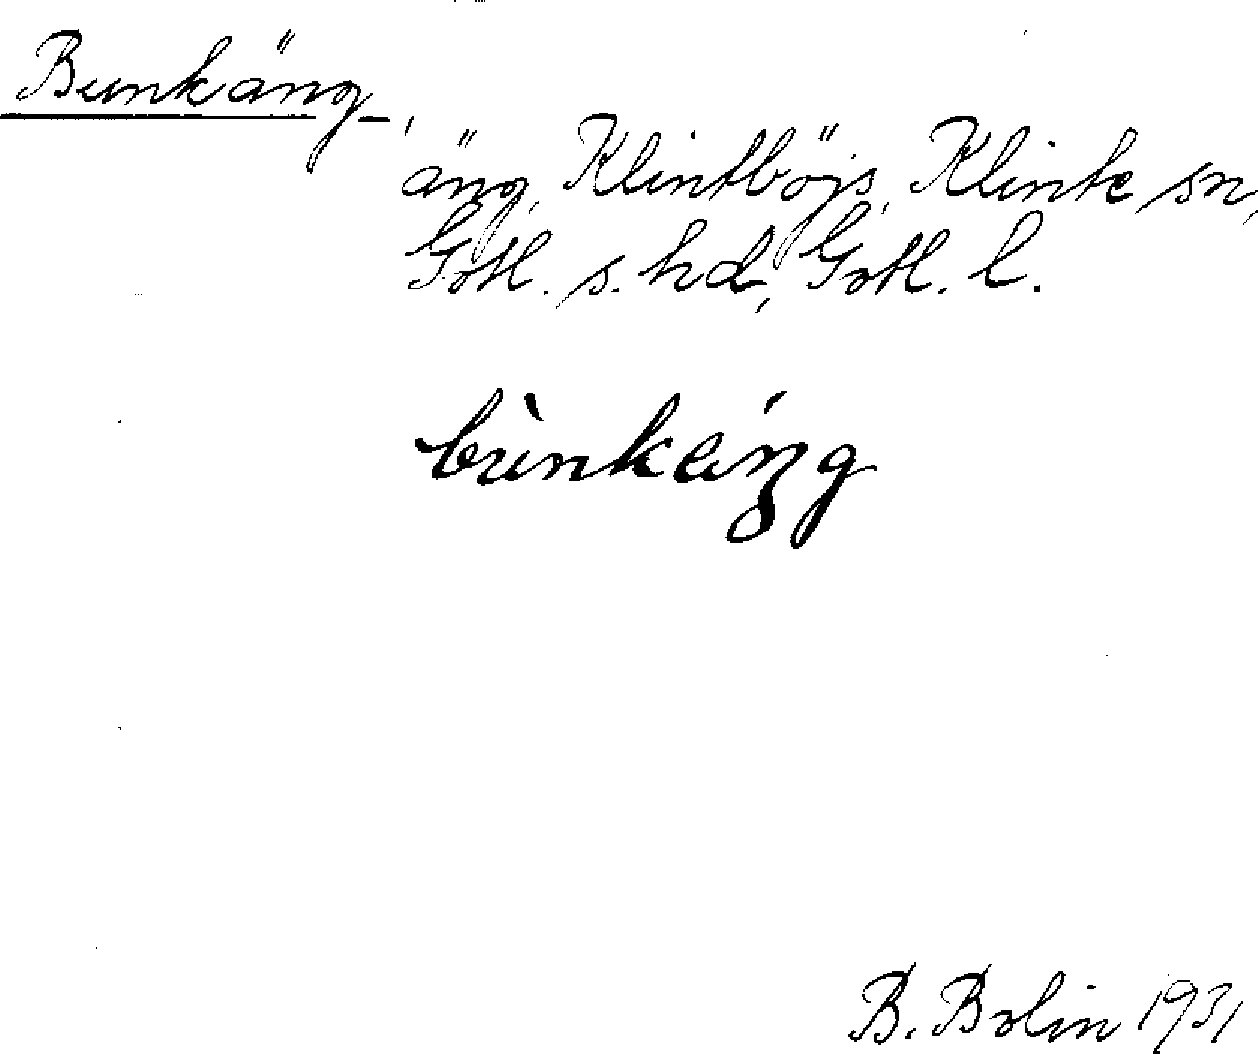 Bunkäng,
äng, Klintböjs, Klinte sn,
Gotl. s. hd, Gotl. l.
bùnkáŋg
B. Bolin 1931